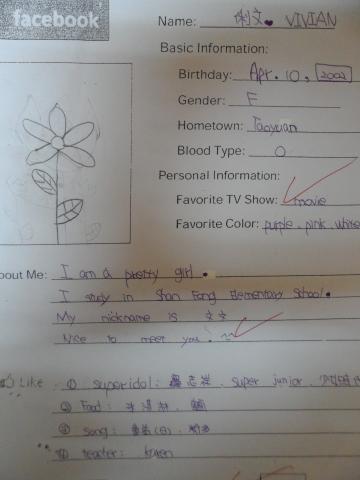 facebook
Name: 俐文 VIVIAN
Basic Information:
Birthday: Apr. 10, 2002
Gender: F
Hometown: Taoyuan
Blood Type: O
Personal Information:
Favorite TV Show: movie
Favorite Color: purple. pink. white
bout Me: I am a pretty girl.
I study in Shan Fong Elementary School.
My nickname is 文文
Nice to meet you.
Like ① superidol: 志 . super junior.
② Food:
③ song:
④ teacher: karen